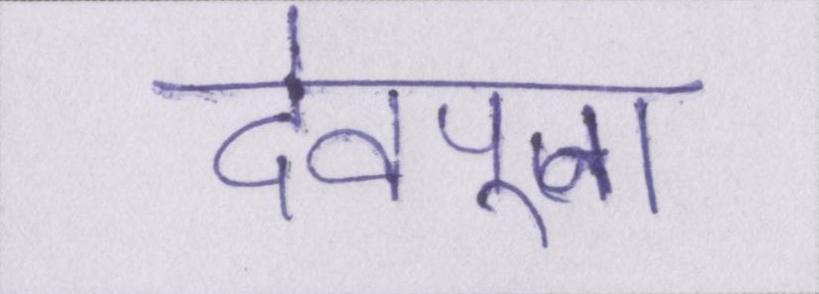 देवपूजा